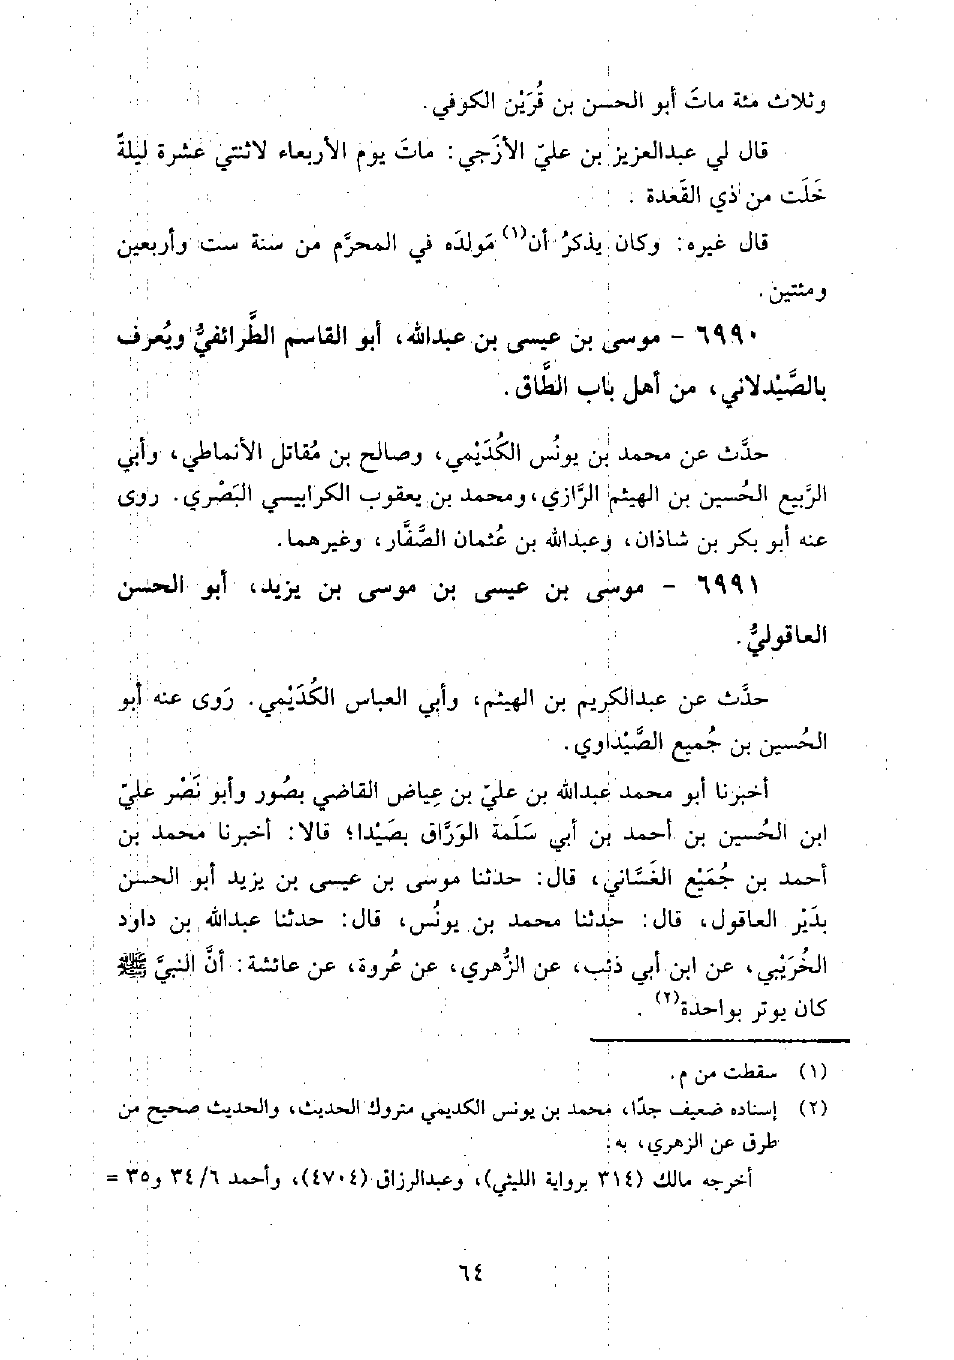 وثلاث مئة ماتَ أبو الحسن بن قُرَيْن الكوفي.
قال لي عبدالعزيز بن عليّ الأزَجي: ماتَ يوم الأربعاء لاثنتي عشرة ليلةً
خَلَت من ذي القَعدة .
قال غيره: وكان يذكرُ أن(١) مَولدَه في المحرَّم من سنة ست وأربعين
ومئتين .
٦٩٩٠ - موسى بن عيسى بن عبدالله، أبو القاسم الطَّرائفيُّ ويُعرف
بالصَّيْدلاني، من أهل باب الطَّاق .
حدَّث عن محمد بن يونُس الكُدَيْمي، وصالح بن مُقاتل الأنماطي، وأبي
الرَّبيع الحُسين بن الهيثم الرَّازي، ومحمد بن يعقوب الكرابيسي البَصْري. روى
عنه أبو بكر بن شاذان، وعبدالله بن عُثمان الصَّفَّار، وغيرهما.
٦٩٩١ - موسى بن عيسى بن موسى بن يزيد، أبو الحسن
العاقوليُّ .
حدَّث عن عبدالكريم بن الهيثم، وأبي العباس الكُدَيْمي. رَوى عنه أبو
الحُسين بن جُميع الصَّيْداوي .
أخبرنا أبو محمد عبدالله بن عليّ بن عِياض القاضي بصُور وأبو نَصْر عليّ
ابن الحُسين بن أحمد بن أبي سَلَمة الورَّاق بصَيْدا؛ قالا: أخبرنا محمد بن
أحمد بن جُمَيْع الغَسَّاني، قال: حدثنا موسى بن عيسى بن يزيد أبو الحسن
بدَيْر العاقول، قال: حدثنا محمد بن يونُس، قال: حدثنا عبدالله بن داود
الخُرَيْبي، عن ابن أبي ذئب، عن الزُّهري، عن عُروة، عن عائشة: أنَّ النبيَّ ﷺ
كان يوتر بواحدة(٢) .
(١) سقطت من م.
(٢) إسناده ضعيف جدًا، محمد بن يونس الكديمي متروك الحديث، والحديث صحيح من
طرق عن الزهري، به.
أخرجه مالك (٣١٤ برواية الليثي)، وعبدالرزاق (٤٧٠٤)، وأحمد ٦/ ٣٤ و٣٥ =
٦٤